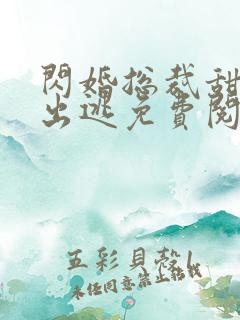 閃婚総裁甜
出逃免費閱
五彩貝殼
未經同意禁止轉載